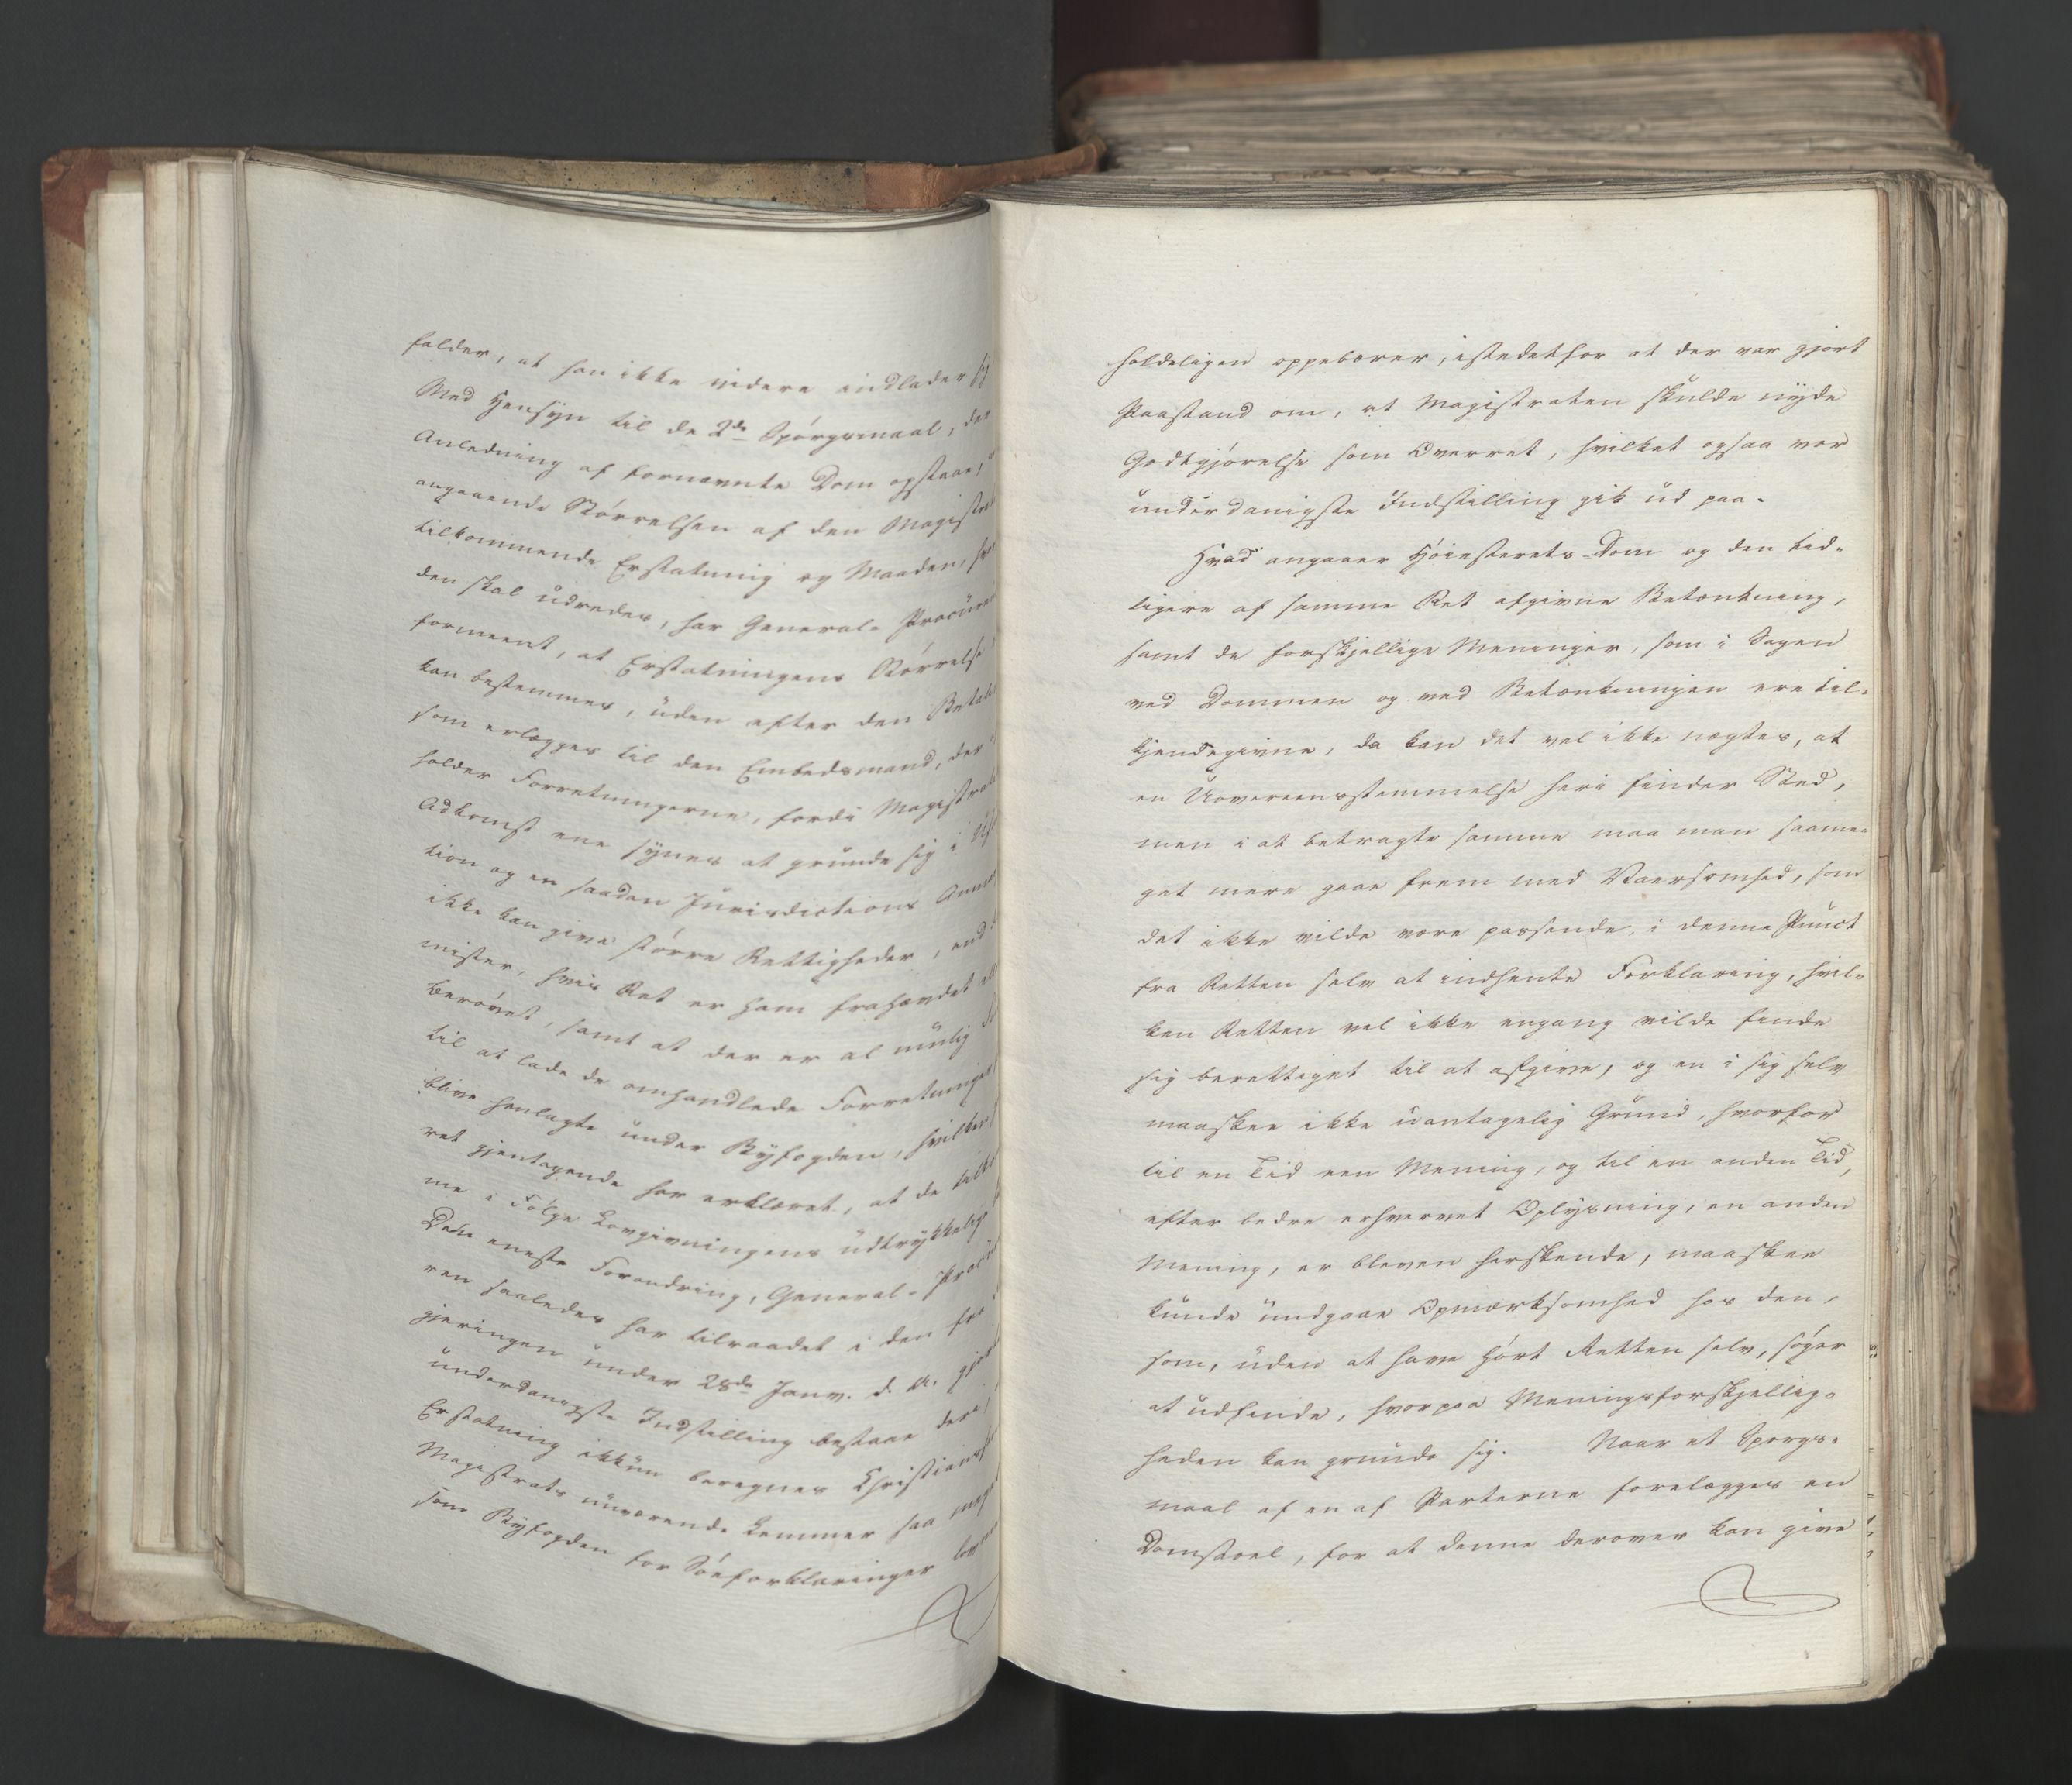 falder, at han ikke videre indlader sig
Med Hensyn til de 2de Spörgsmaal, der
Anledning af fornævnte Dom opstaae,
angaaende Störrelsen af den Magistra
tilkommende Erstatning og Maaden, hvor
den skal udredes, har General-Procure
formeent, at Erstatningens Störrelse
kan bestemmes, uden efter den Betal
som erlægges til den Embedsmand, der
holder Forretningerne, fordi Magistrat
Adkomst ene synes at grunde sig i
tion og en saadan Jurisdictions Annex
ikke kan give större Rettigheder, end
mister, hvis Ret er ham frahændet ell
berövet, samt at der er al muelig
til at lade de omhandlede Forretninger
blive henlagte under Byfogden, hvilken
ret gjentagende har erklæret, at de tilko
me i Fölge Lovgivningens udtrykkelige
Den eneste Forandring, General-Procu
ren saaledes har tilraadet i den fra
gjeringen under 28de Janv. d. A. gjort
underdanigste Indstilling bestaae deri,
Erstatning ikkun beregnes Christians
Magistrats nuværende Lemmer saa meget
som Byfogden for Söeforklaringer lov
holdeligen oppebærer, istedetfor at der var gjort
Paastand om, at Magistraten skulde nyde
Godtgjörelse som Overret, hvilket ogsaa vor
underdanigste Indstilling gik ud paa.
Hvad angaaer Höiesterets-Dom og den tid-
ligere af samme Ret afgivne Betænkning,
samt de forskjellige Meninger, som i Sagen
ved Dommen og ved Betænkningen ere til-
kjendegivne, da kan det vel ikke nægtes, at
en Uovereensstemmelse heri finder Sted,
men i at betragte samme maa man saame-
get mere gaae frem med Varsomhed, som
det ikke vilde være passende, i denne Punct
fra Retten selv at indhente Forklaring, hvil-
ken Retten vel ikke engang vilde finde
sig berettiget til at afgive, og en i sig selv
maaskee ikke uantagelig Grund, hvorfor
til en Tid een Mening, og til en anden Tid,
efter bedre erhvervet Oplysning, en anden
Mening, er bleven herskende, maaskee
kunde undgaae Opmærksomhed hos den,
som, uden at have hört Retten selv, söger
at udfinde, hvorpaa Meningsforskjellig-
heden kan grunde sig. Naar et Spörgs-
maal af en af Parterne forelægges en
Domstoel, for at denne derover kan give